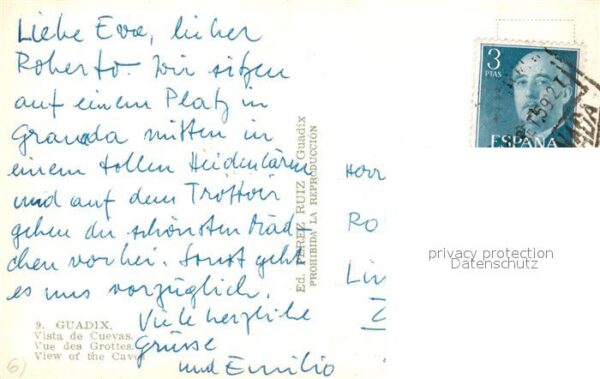 Liebe Eva, lieber
Roberto. Wir sitzen
auf einem Platz in
Granada mitten in
einem tollen Heidenlärm
und auf dem Trottoir
gehen die schönsten Mäd-
chen vorbei. Sonst geht
es uns vorzüglich.
Viele herzliche
Grüsse
und Emilio
9. GUADIX.
Vista de Cuevas.
Vue des Grottes.
View of the Caves
6)
Ed. PEREZ RUIZ - Guadix
PROHIBIDA LA REPRODUCCIÓN
3
PTAS
ESPAÑA
Herr
Ro
Lin
privacy protection
Datenschutz